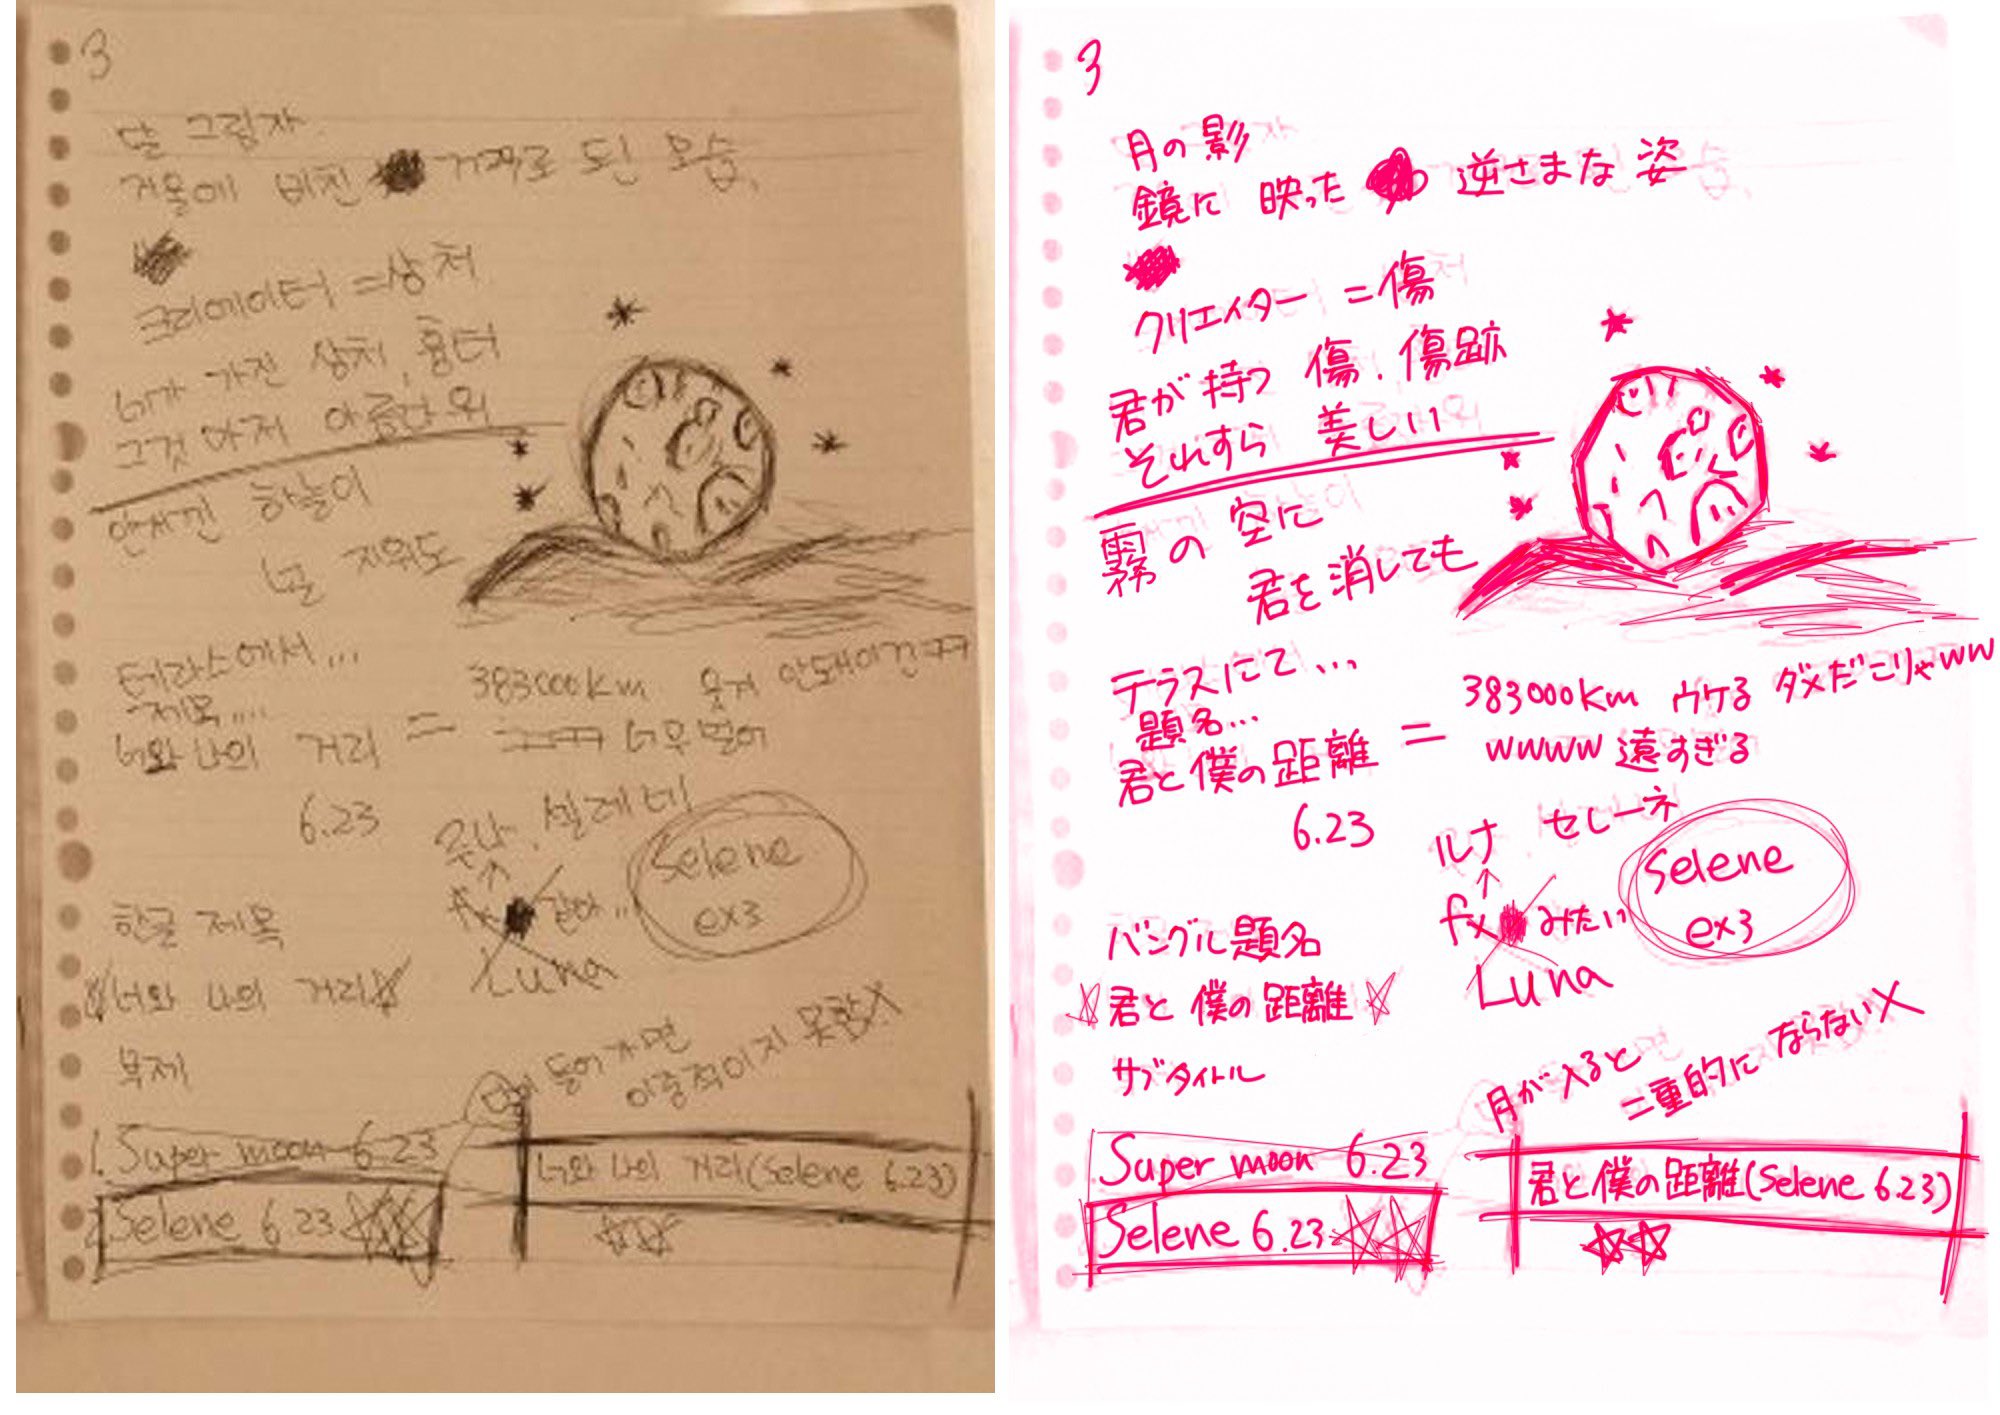 3
달 그림자
거울에 비친 거꾸로 된 모습.
크리에이터 = 상처
너가 가진 상처, 흉터
그것마저 아름다워
안개낀 하늘이
널 지워도
테라스에서...
제목....
너와 나의 거리 = 383000km 웃겨 안돼이건ㅋㅋ
ㅋㅋㅋㅋ 너무 멀어
6.23
루나, 셀레네
↑
fx 같아..
Luna
Selene
ex3
한글 제목
☆너와 나의 거리☆
부제
들어가면
이중적이지 못함X
1. Super moon 6.23
2. Selene 6.23 ☆☆
너와 나의 거리(Selene 6.23)
☆☆
3
月の影
鏡に映った 逆さまな姿
クリエイター = 傷
君が持つ 傷、傷跡
それすら 美しい
霧の空に
君を消しても
テラスにて...
題名...
君と僕の距離 = 383000km ウケる ダメだこりゃww
wwww 遠すぎる
6.23
ルナ セレーネ
↑
fx みたい
Luna
Selene
ex3
ハングル題名
☆君と僕の距離☆
サブタイトル
月が入ると
二重的にならないX
Super moon 6.23
Selene 6.23 ☆☆
君と僕の距離(Selene 6.23)
☆☆